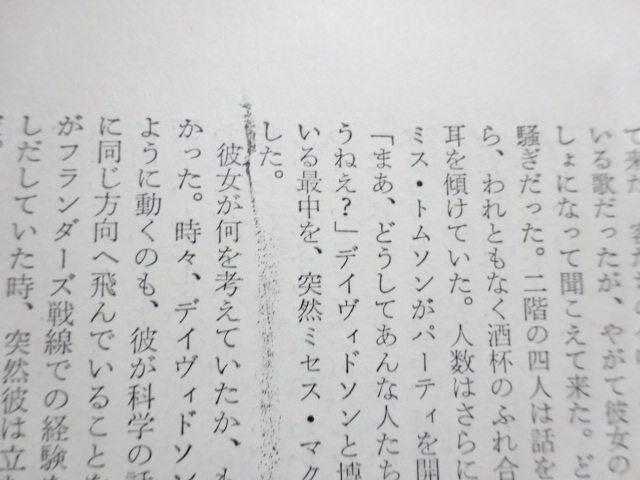 て来た
いる歌だったが、やがて彼女の
しょになって聞こえて来た。ど
騒ぎだった。二階の四人は話を
ら、われともなく酒杯のふれ合
耳を傾けていた。人数はさらに
ミス・トムソンがパーティを開
「まあ、どうしてあんな人たち
うねえ？」デイヴィドソンと博
いる最中を、突然ミセス・マク
した。
彼女が何を考えていたか、も
かった。時々、デイヴィドソン
ように動くのも、彼が科学の話
に同じ方向へ飛んでいることを
がフランダーズ戦線での経験を
しだしていた時、突然彼は立ち